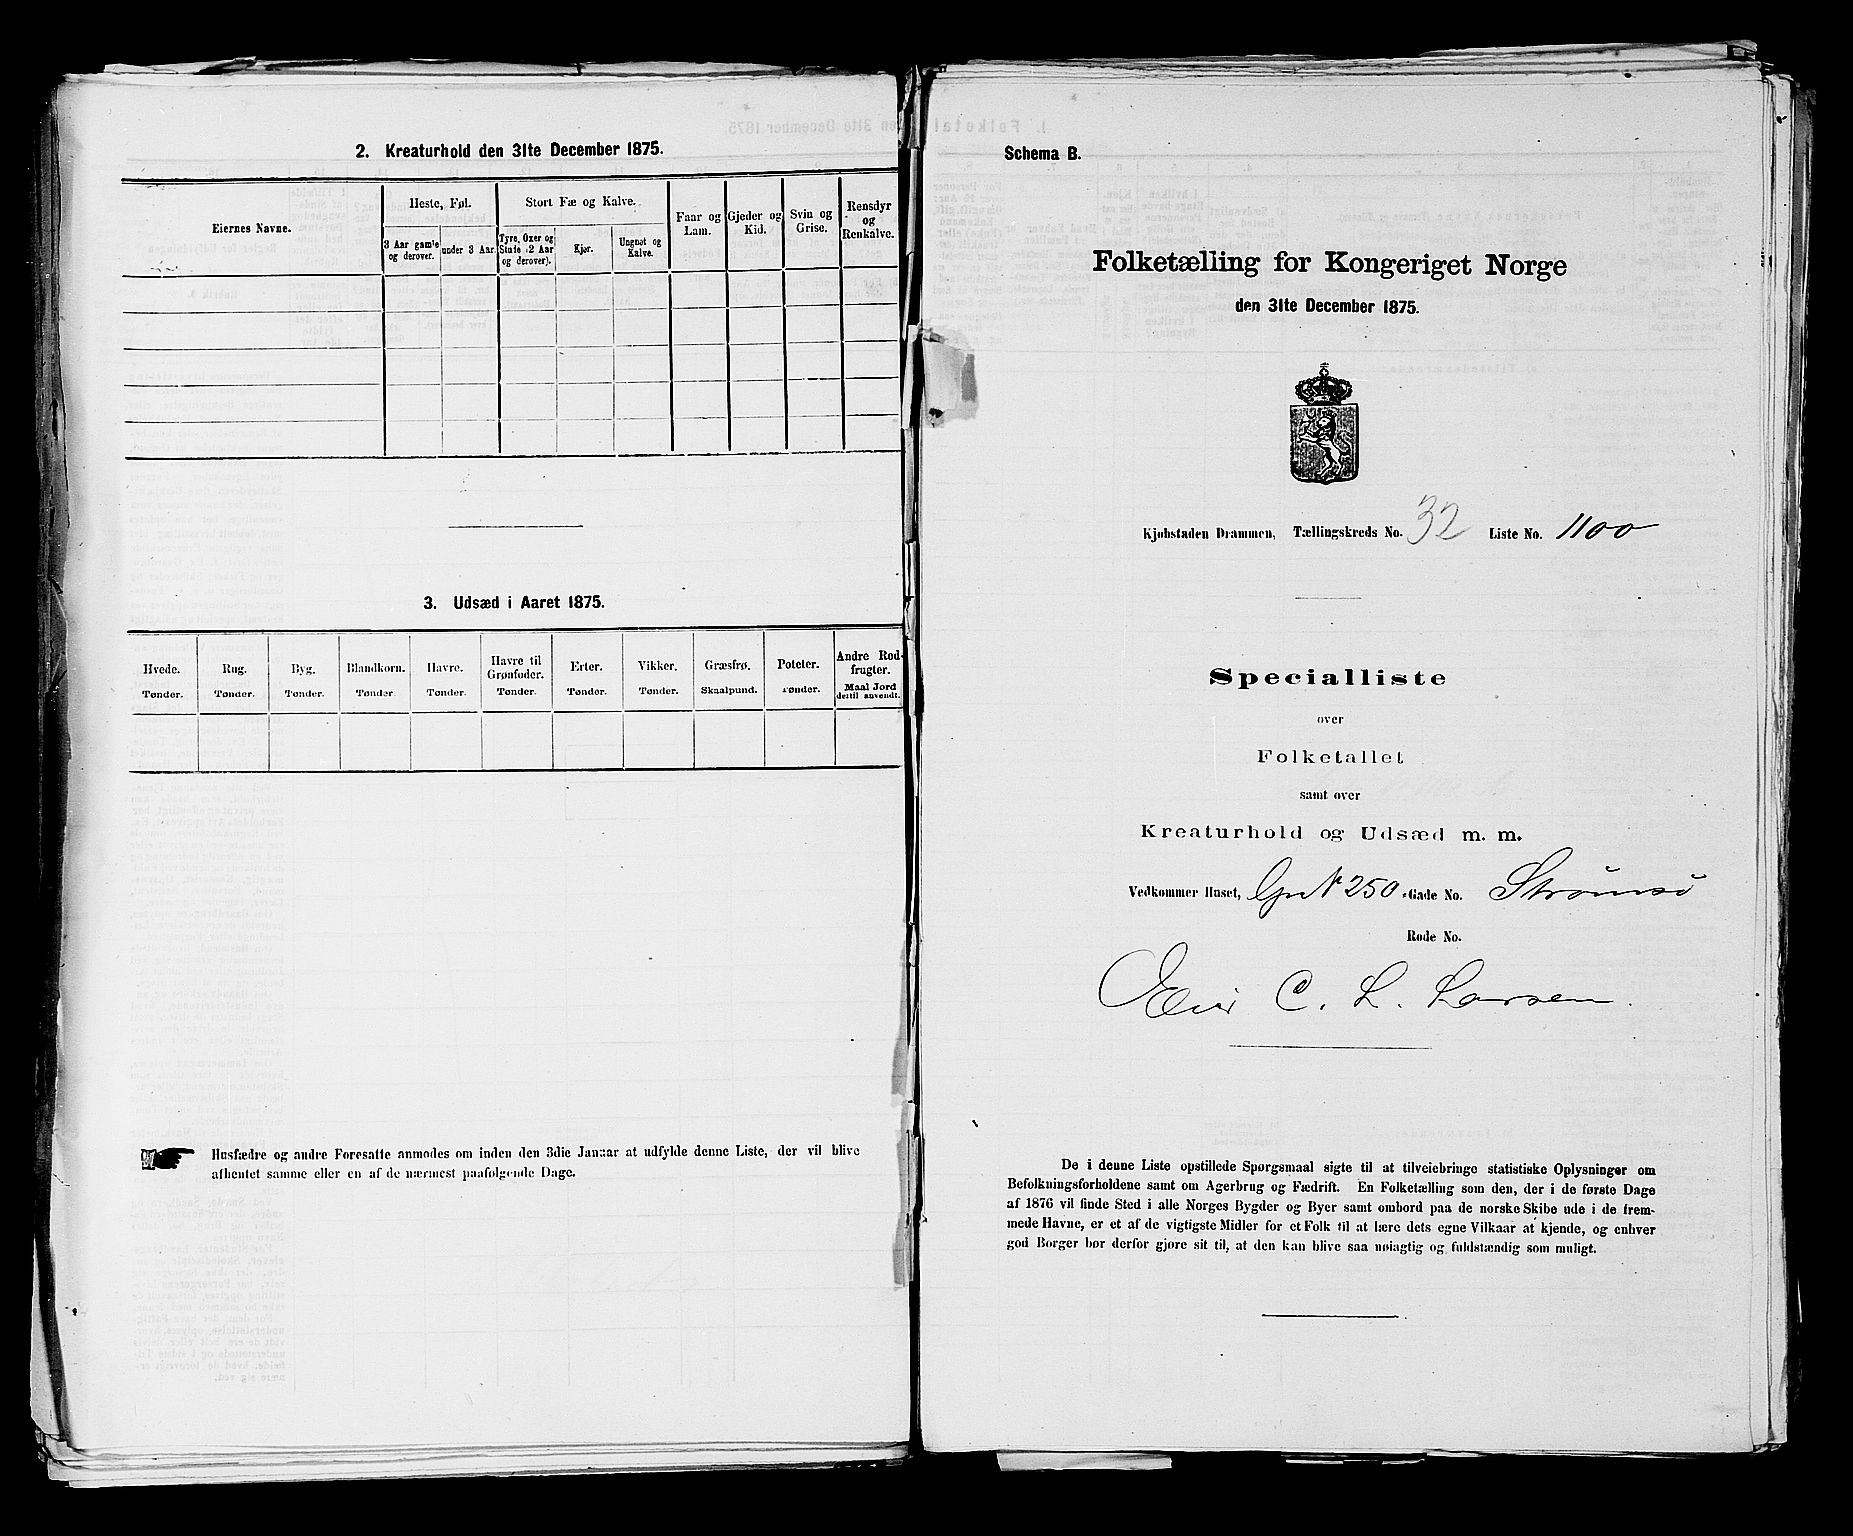 2. Kreaturhold den 31te December 1875.
Eiernes Navne.
Heste, Føl.
3 Aar gamle og derover.
under 3 Aar.
Stort Fæ og Kalve.
Tyre, Oxer og Stude (2 Aar og derover).
Kjør.
Ungnøt og Kalve.
Faar og Lam.
Gjeder og Kid.
Svin og Grise.
Rensdyr og Renkalve.
3. Udsæd i Aaret 1875.
Hvede. Rug. Byg. Blandkorn. Havre. Havre til Grønfoder. Erter. Vikker. Græsfrø. Poteter. Andre Rodfrugter.
Tønder. Tønder. Tønder. Tønder. Tønder. Tønder. Tønder. Tønder. Skaalpund. Tønder. Maal Jord dertil anvendt.
Husfædre og andre Foresatte anmodes om inden den 3die Januar at udfylde denne Liste, der vil blive
afhentet samme eller en af de nærmest paafølgende Dage.
Schema B.
Folketælling for Kongeriget Norge
den 31te December 1875.
Kjøbstaden Drammen, Tællingskreds No. 32 Liste No. 1100
Specialliste
over
Folketallet
samt over
Kreaturhold og Udsæd m. m.
Vedkommer Huset, Gr N 250 Gade No. Strømsö
Rode No.
Eier C. L. Larsen.
De i denne Liste opstillede Spørgsmaal sigte til at tilveiebringe statistiske Oplysninger om
Befolkningsforholdene samt om Agerbrug og Fædrift. En Folketælling som den, der i de første Dage
af 1876 vil finde Sted i alle Norges Bygder og Byer samt ombord paa de norske Skibe ude i de frem-
mede Havne, er et af de vigtigste Midler for et Folk til at lære dets egne Vilkaar at kjende, og enhver
god Borger bør derfor gjøre sit til, at den kan blive saa nøiagtig og fuldstændig som muligt.